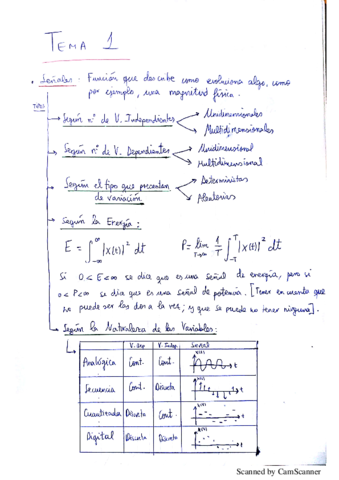 TEMA 1
· Señales: Función que describe como evoluciona algo, como
por ejemplo, una magnitud física.
TIPOS
Según nº de V. Independientes
Unidimensionales
Multidimensionales
Según nº de V. Dependientes
Unidimensional
Multidimensional
Según el tipo que presentan
de variación
Deterministas
Aleatorias
Según la Energía:
E = ∫_{-∞}^{∞} |x(t)|² dt P = lim_{T→∞} 1/T ∫_{-T}^{T} |x(t)|² dt
Si 0 < E < ∞ se dice que es una señal de energía, pero si
0 < P < ∞ se dice que es una señal de potencia. [Tener en cuenta que
no puede ser las dos a la vez; y que se puede no tener ninguna].
Según la Naturaleza de las Variables:
V. Dep V. Indep. Señal
Analógica Cont. Cont. x(t) t
Secuencia Cont. Discreta
Cuantizada Discreta Cont. t
Digital Discreta Discreta
Scanned by CamScanner